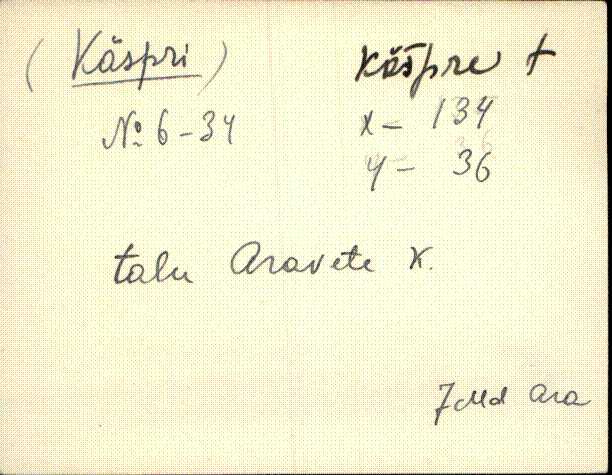 (Käspri)
Käspre +
№ 6-34
x - 134
y - 36
talu Aravete k.
JMd Ara